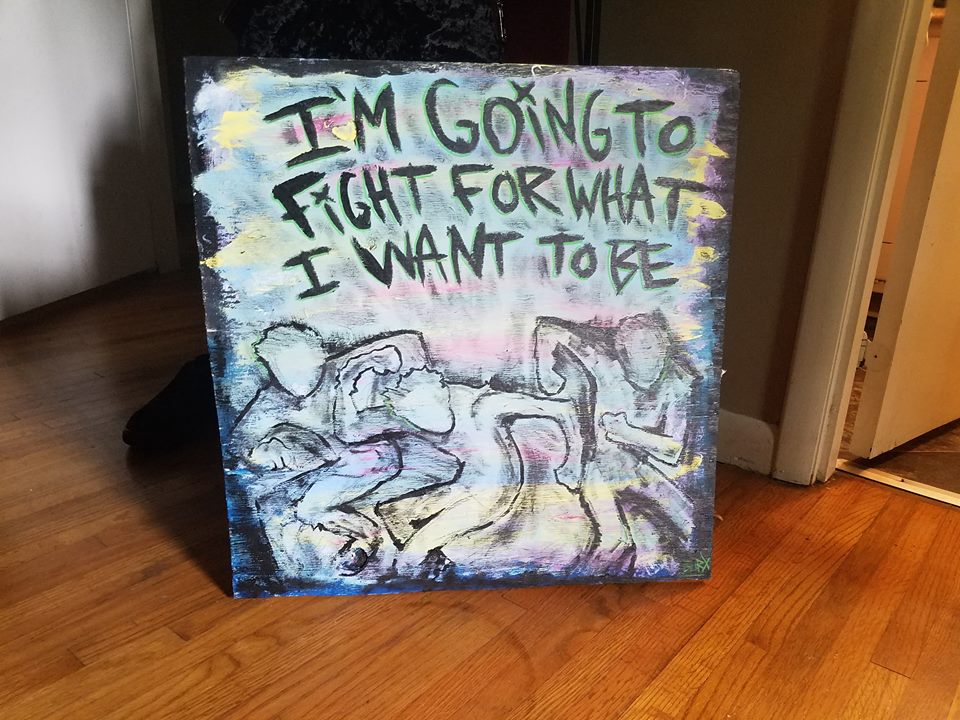 I'M GOiNG TO
FiGHT FOR WHAT
I WANT TO BE